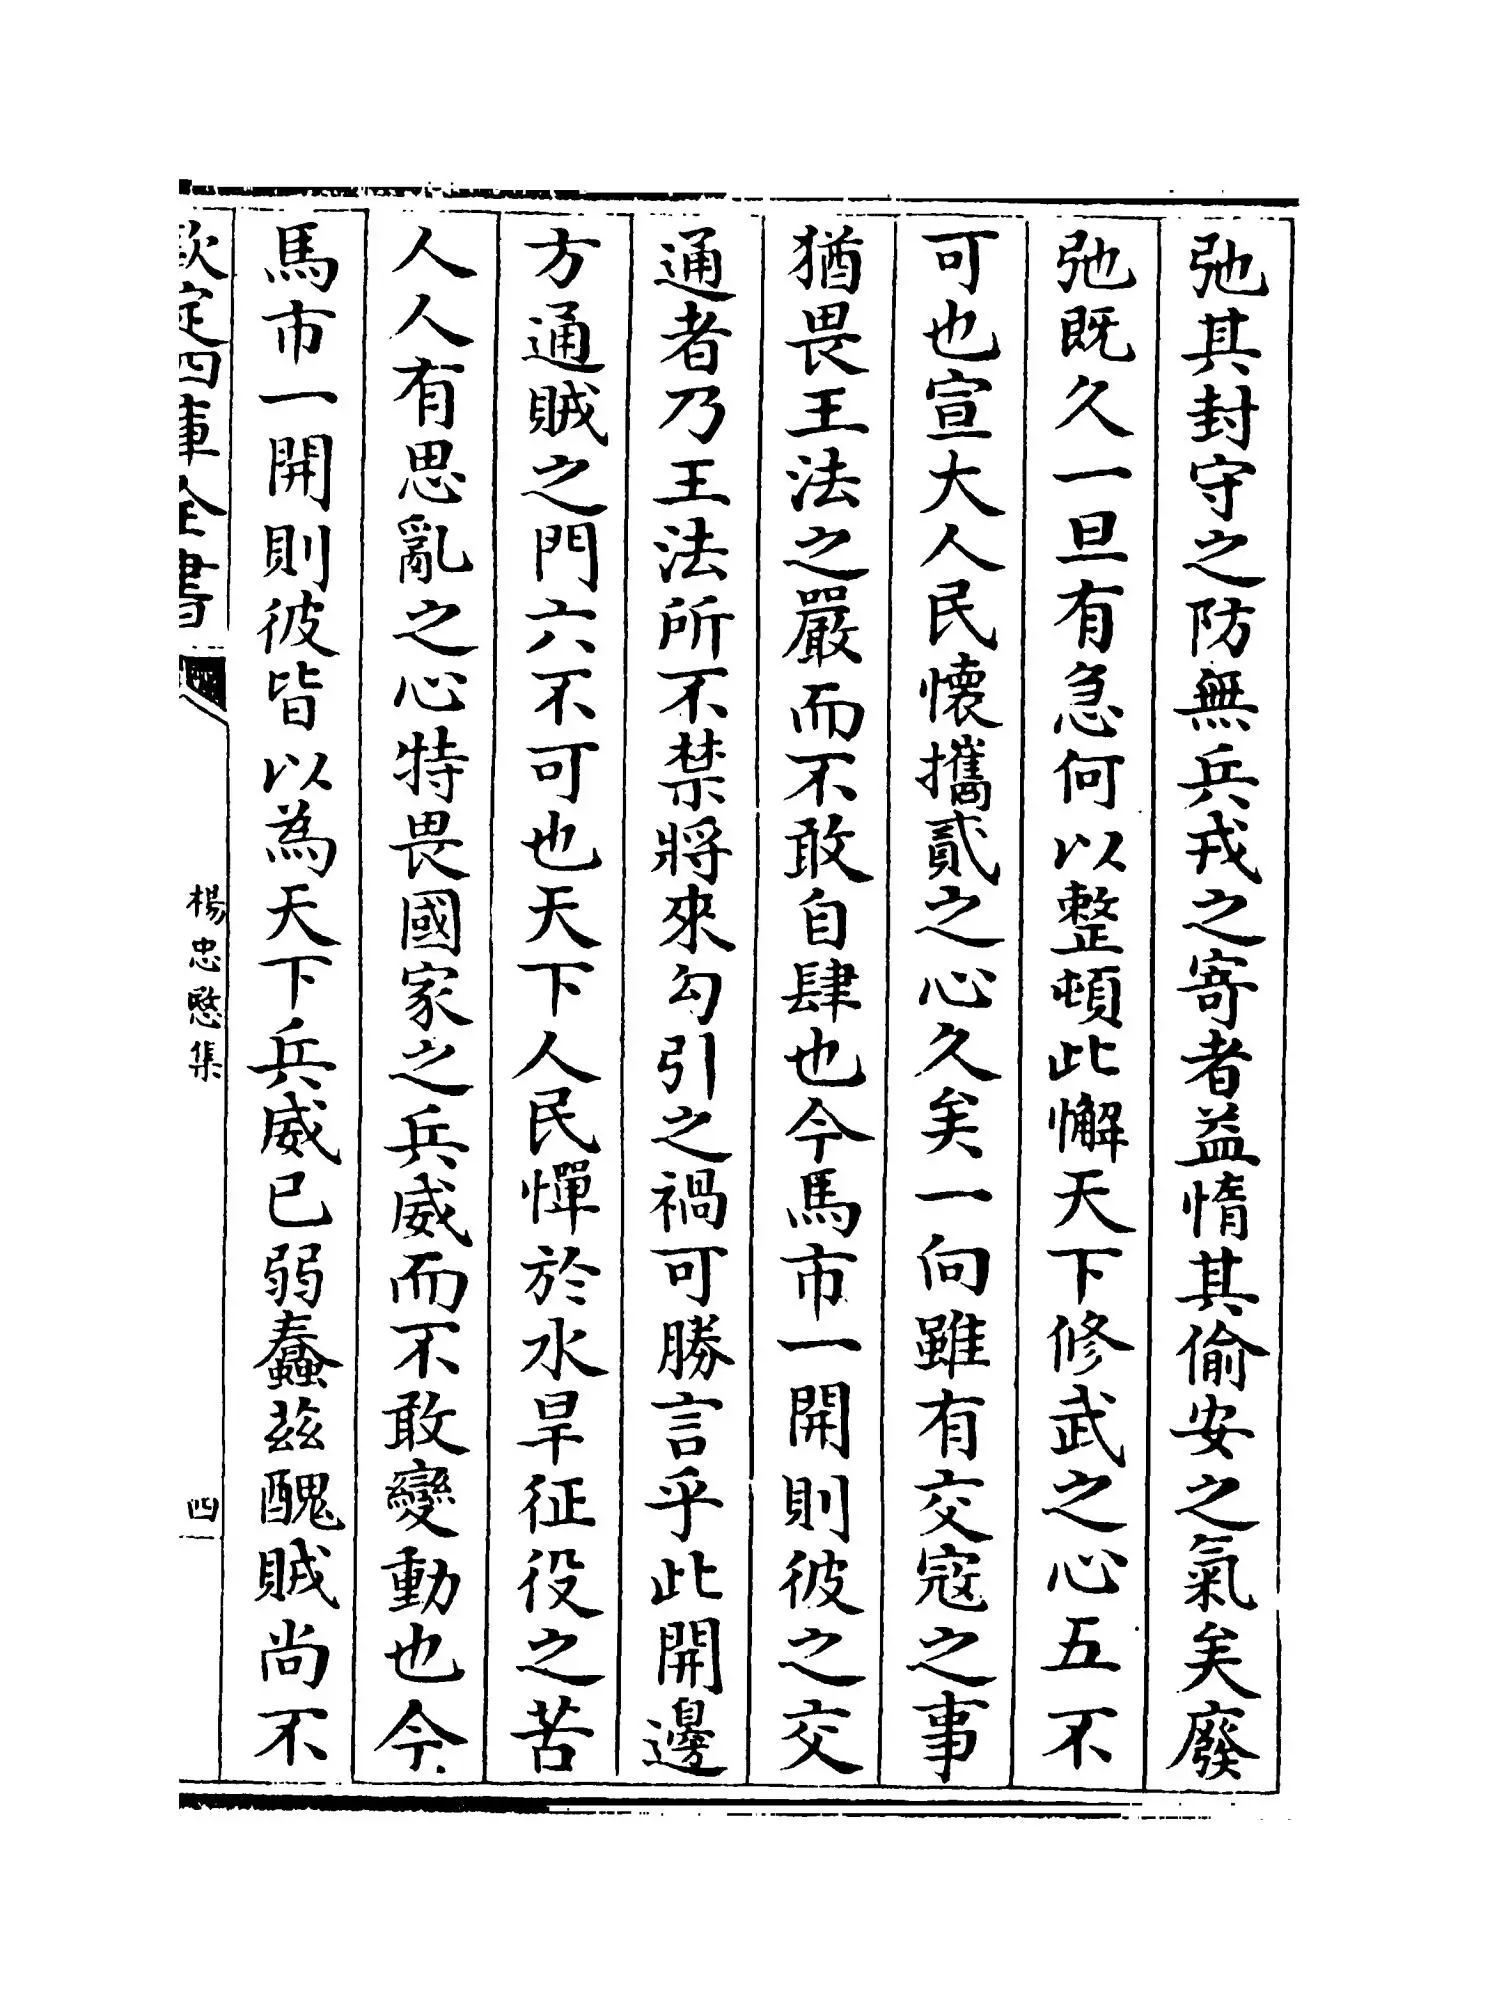 弛其封守之防無兵戎之寄者益惰其偷安之氣矣廢
弛既久一旦有急何以整頓此懈天下修武之心五不
可也宣大人民懷攜貳之心久矣一向雖有交寇之事
猶畏王法之嚴而不敢自肆也今馬市一開則彼之交
通者乃王法所不禁將來勾引之禍可勝言乎此開邊
方通賊之門六不可也天下人民憚於水旱征役之苦
人人有思亂之心特畏國家之兵威而不敢變動也今
馬市一開則彼皆以為天下兵威已弱蠢茲醜賊尚不
欽定四庫全書 楊忠愍集 四